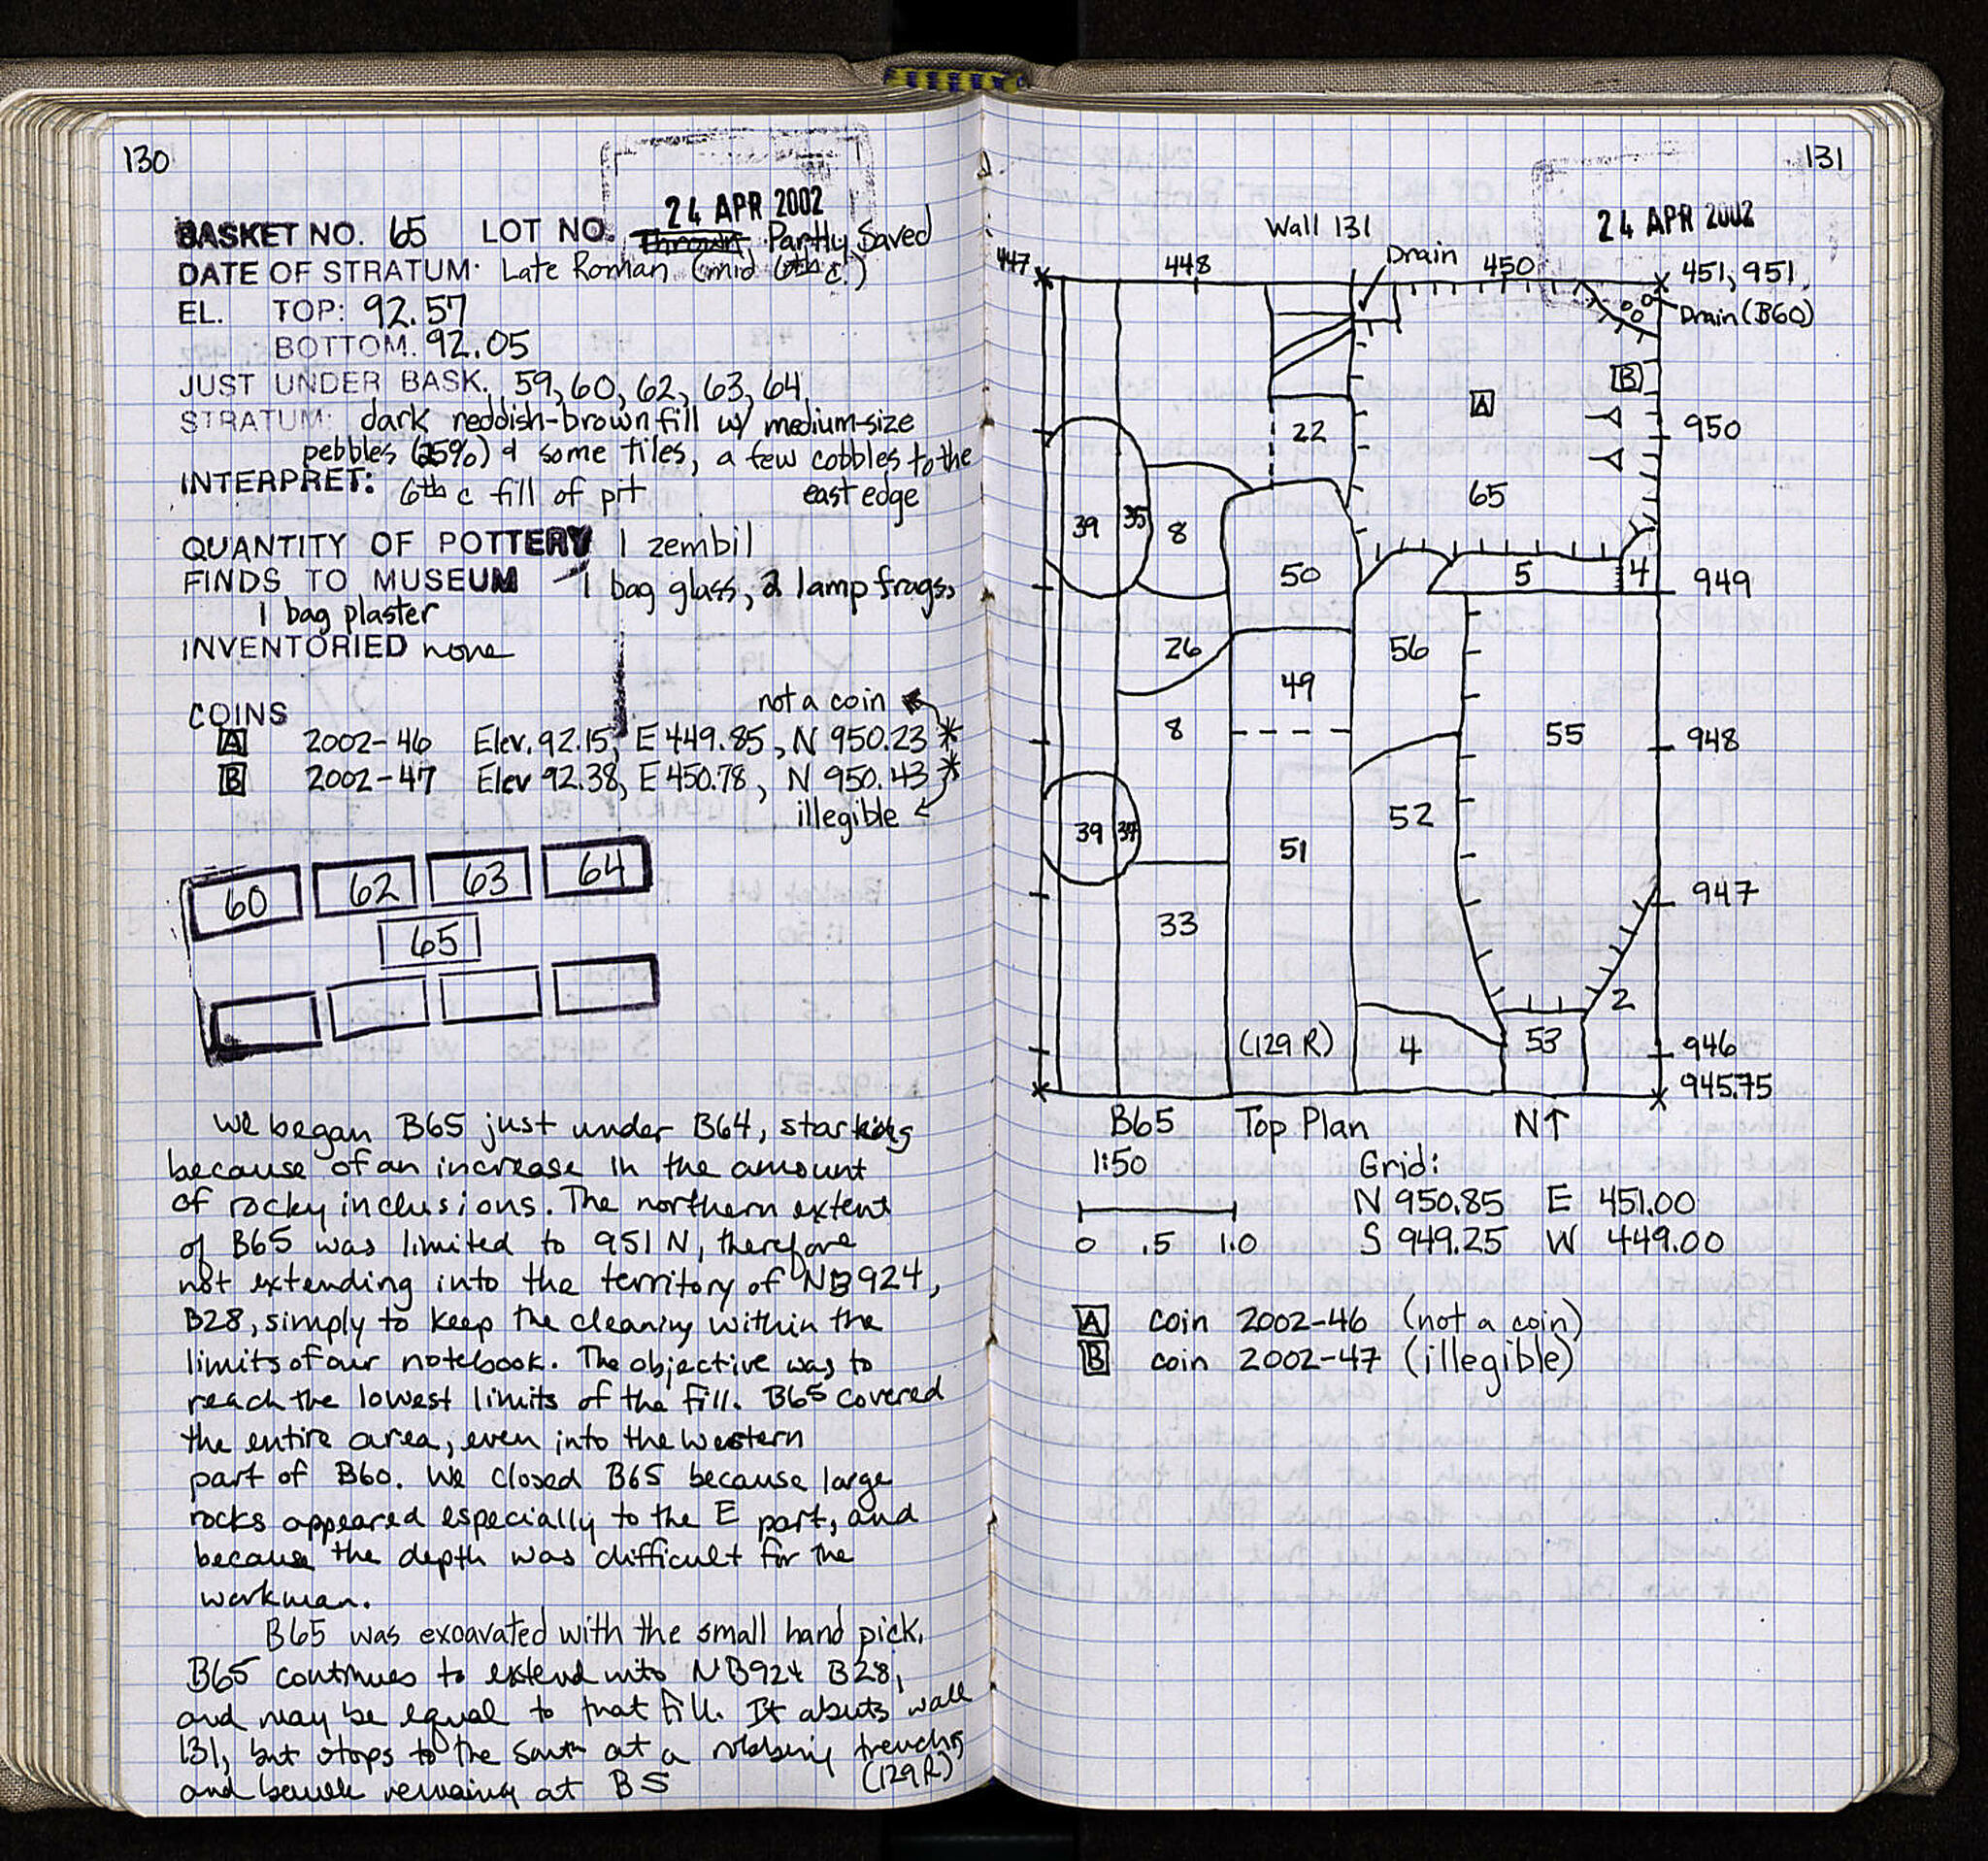 130
24 APR 2002
BASKET NO. 65 LOT NO. Thrown Partly Saved
DATE OF STRATUM: Late Roman (mid 6th c.)
EL. TOP: 92.57
BOTTOM. 92.05
JUST UNDER BASK. 59, 60, 62, 63, 64
STRATUM: dark reddish-brown fill w/ medium-size
pebbles (25%) & some tiles, a few cobbles to the
east edge
INTERPRET: 6th c fill of pit
QUANTITY OF POTTERY 1 zembil
FINDS TO MUSEUM 1 bag glass, 2 lamp frags,
1 bag plaster
INVENTORIED none
not a coin
COINS
A 2002-46 Elev. 92.15, E 449.85, N 950.23 *
B 2002-47 Elev 92.38, E 450.78, N 950.43 *
illegible
60 62 63 64
65
We began B65 just under B64, starting
because of an increase in the amount
of rocky inclusions. The northern extent
of B65 was limited to 951 N, therefore
not extending into the territory of NB924,
B28, simply to keep the cleaning within the
limits of our notebook. The objective was to
reach the lowest limits of the fill. B65 covered
the entire area, even into the western
part of B60. We closed B65 because large
rocks appeared especially to the E part, and
because the depth was difficult for the
workman.
B65 was excavated with the small hand pick.
B65 continues to extend into NB924 B28,
and may be equal to that fill. It abuts wall
131, but stops to the South at a robbing trench
(129R)
and baulk remaining at B5
131
24 APR 2002
Wall 131
Drain
447 448 450 451, 951
Drain (B60)
B
A
22
950
65
39 35 8
50 5 4 949
26 56
49
8 55 948
39 37 51 52
947
33
2
(129 R) 4 53 946
945.75
B65 Top Plan N↑
1:50 Grid:
N 950.85 E 451.00
0 .5 1.0 S 949.25 W 449.00
A coin 2002-46 (not a coin)
B coin 2002-47 (illegible)